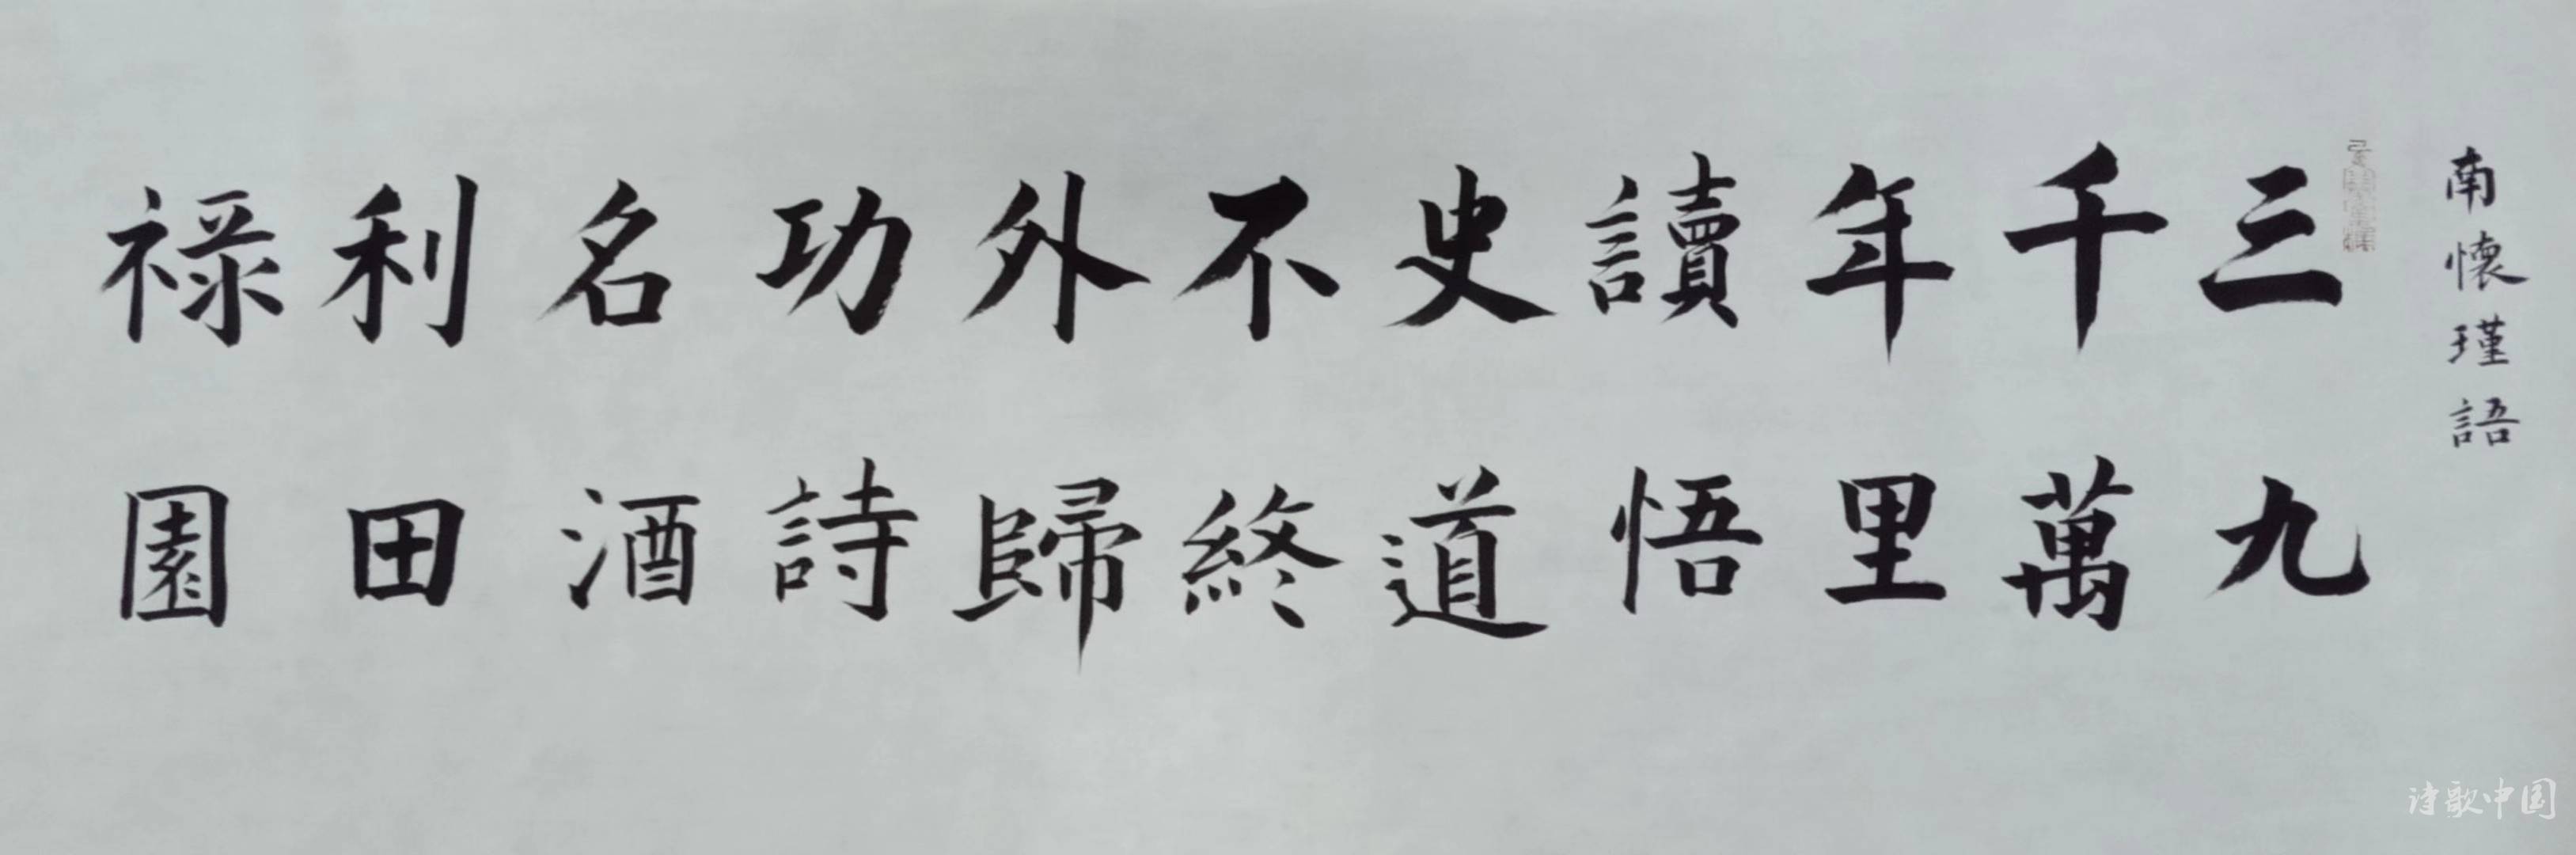 南懷瑾語
三千年讀史不外功名利祿
九萬里悟道終歸詩酒田園
诗歌中国